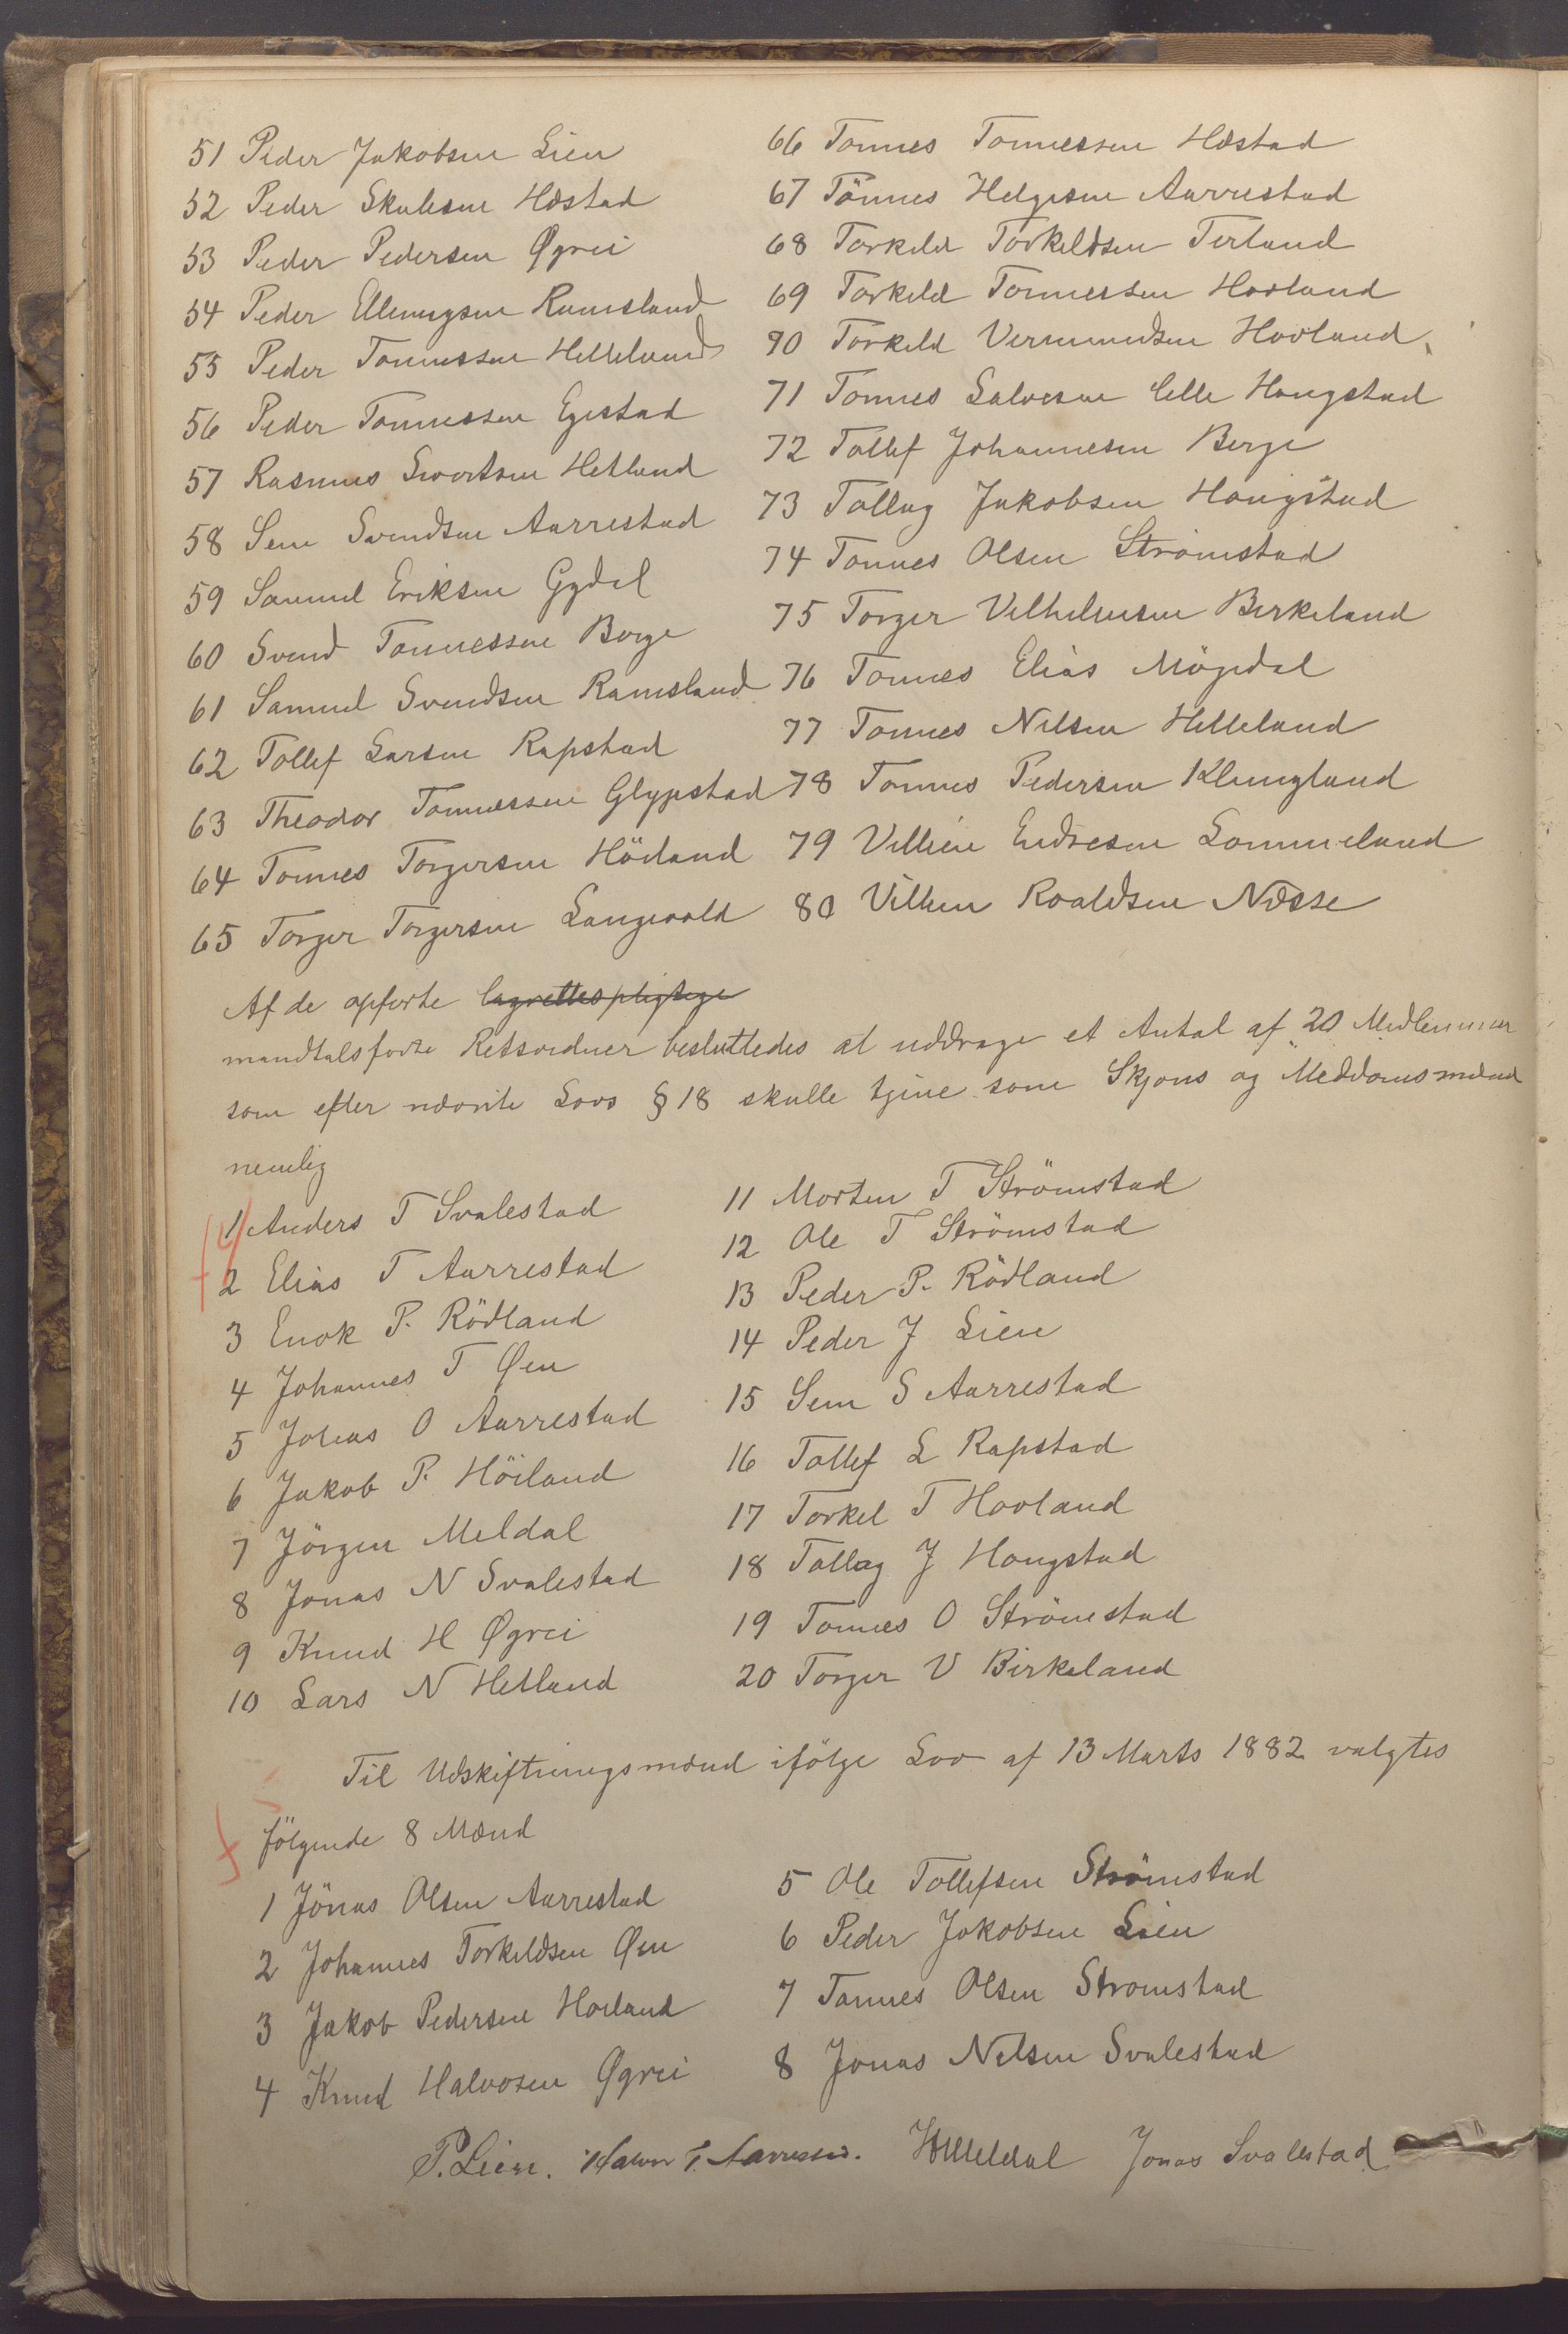 51 Peder Jakobsen Lien
52 Peder Skulesen Hæstad
53 Peder Pedersen Øgrei
54 Peder Ellingsen Ramsland
55 Peder Tonnessen Hellelvand
56 Peder Tonnessen Egestad
57 Rasmus Sivertsen Hetland
58 Sem Svendsen Aarrestad
59 Samuel Eriksen Gydal
60 Svend Tonnessen Berge
61 Samuel Svendsen Ramsland
62 Tollef Larsen Rapstad
63 Theodor Tonnessen Glypstad
64 Tonnes Torgersen Höiland
65 Torger Torgersen Langevald
66 Tonnes Tonnessen Hæstad
67 Tönnes Helgesen Aarrestad
68 Torkeld Torkeldsen Terland
69 Torkeld Tonnessen Hovland
70 Torkeld Vermundsen Hovland
71 Tonnes Salvesen Lille Haugstad
72 Tollef Johannesen Berge
73 Tollag Jakobsen Haugstad
74 Tonnes Olsen Strömstad
75 Torger Vilhelmsen Birkeland
76 Tonnes Elias Mögedal
77 Tonnes Nilsen Helleland
78 Tonnes Pedersen Klungland
79 Villien Endresen Lommeland
80 Villien Roaldsen Næsse
Af de opførte lagrettespligtige
mandtalsførte Retsordner besluttedes at uddrage et Antal af 20 Medlemmer
som efter nævnte Lovs § 18 skulle tjene som Skjøns og Meddomsmænd
nemlig
1 Anders T Svalestad
2 Elias T Aarrestad
3 Enok P. Rödland
4 Johannes T Øen
5 Jonas O Aarrestad
6 Jakob P. Höiland
7 Jörgen Meldal
8 Jonas N Svalestad
9 Knud H Øgrei
10 Lars N Hetland
11 Morten T Strömstad
12 Ole T Strömstad
13 Peder P. Rödland
14 Peder J Lien
15 Sem S Aarrestad
16 Tollef L Rapstad
17 Torkel T Hovland
18 Tollag J Haugstad
19 Tonnes O Strömstad
20 Torger V Birkeland
Til Udskiftningsmænd ifölge Lov af 13 Marts 1882 valgtes
fölgende 8 Mænd
1 Jönas Olsen Aarrestad
2 Johannes Torkeldsen Øen
3 Jakob Pedersen Hoiland
4 Knud Halvosen Øgrei
5 Ole Tollefsen Strömstad
6 Peder Jakobsen Lien
7 Tonnes Olsen Stromstad
8 Jonas Nilsen Svalestad
P. Lien. Halvor T. Aarrestad. Meldal Jonas Svalestad